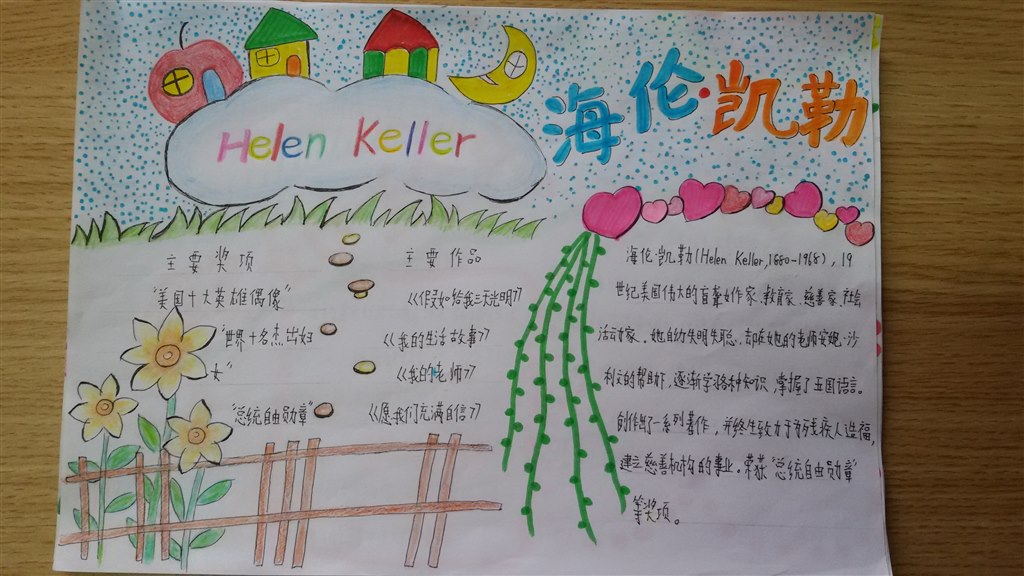 Helen Keller
海伦·凯勒
主要奖项
"美国十大英雄偶像"
"世界十名杰出妇
女"
"总统自由勋章"
主要作品
《假如给我三天光明》
《我的生活故事》
《我的老师》
《愿我们充满自信》
海伦·凯勒(Helen Keller,1880-1968),19
世纪美国伟大的盲聋女作家、教育家、慈善家、社会
活动家。她自幼失明失聪,却在她的老师安妮·沙
利文的帮助下,逐渐学习各种知识,掌握了五国语言。
创作出了一系列著作,并终生致力于为残疾人造福,
建立慈善机构的事业。荣获"总统自由勋章"
等奖项。